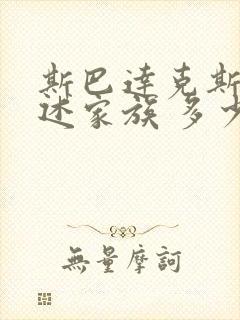 斯巴達克斯
述家族多少
無量摩訶